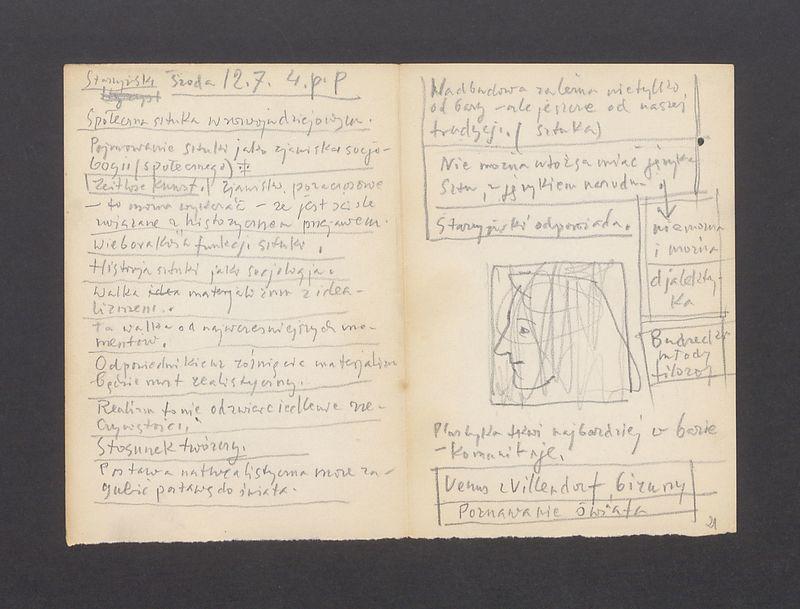 Starzyński środa 12.7. 4.p.p
Społeczna sztuka w rozwoju dziejowym.
Pojmowanie sztuki jako zjawiska socjo-
logii (społecznego)
Zeitlose Kunst. zjawisko pozaczasowe
— to można wykazać — że jest ściśle
związane z historycznym pojawem.
Wieloraka funkcja sztuki.
Historja sztuki jako socjologja.
Walka materjalizmu z idea-
lizmem.
Ta walka od najwcześniejszych mo-
mentów.
Odpowiednikiem materjalizm
będzie nurt realistyczny.
Realizm to nie odzwierciedlenie rze-
czywistości,
Stosunek twórczy.
Postawa naturalistyczna może za-
gubić postawę do świata.
Nadbudowa zależna nietylko
od bazy — ale jeszcze od naszej
tradycji. (sztuka)
Nie można utożsamiać języka
sztuki z językiem narodu.
Starzyński odpowiada.
nie można
i można
djalekty-
ka
młody
filozof
Plastyka tkwi najbardziej w bazie
Venus z Willendorf, bizony
Poznawanie świata
21